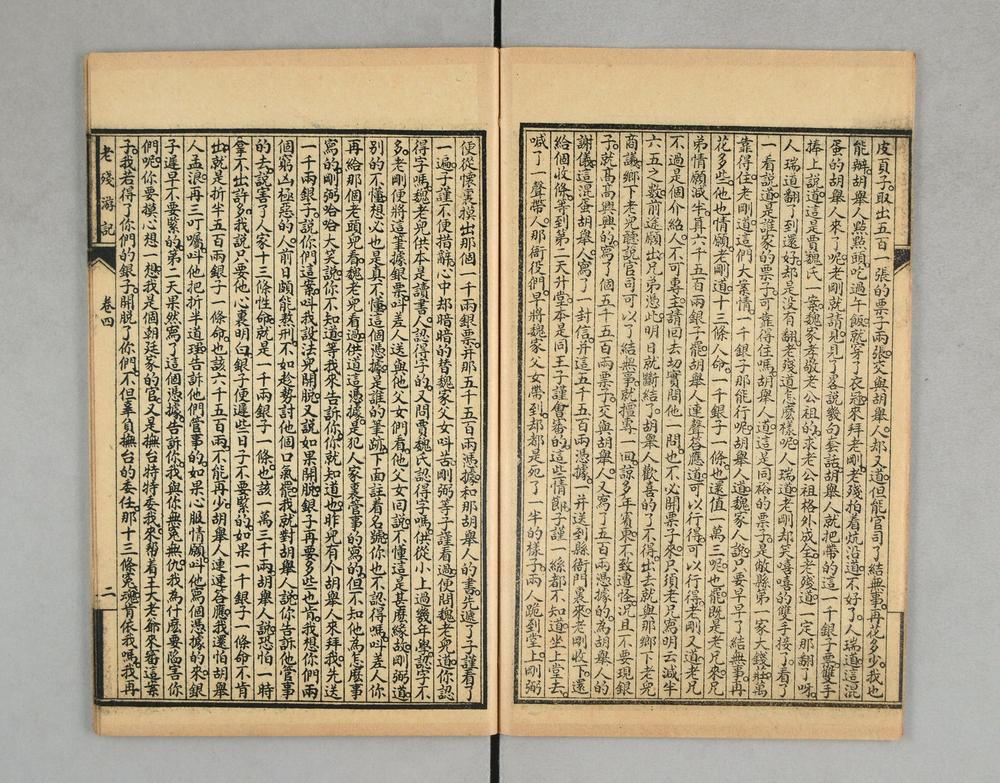 皮頁子。取出五百一張的票子兩張。交與胡舉人。却又道。但能官司了結無事。再花多少。我也
能辦。胡舉人點點頭。吃過午飯。就穿了衣冠來拜老剛。老殘拍着炕沿道。不好了。人瑞道。這混
蛋的胡舉人來了呢。老剛就請見。見了畧說幾句套話。胡舉人就把帶的這一千銀子票雙手
捧上。說道。這是賈魏氏一案。魏家孝敬老公祖的。求老公祖格外成全。老殘道。一定那翻了呀。
人瑞道。翻了到還好。却是沒有翻。老殘道。怎麽樣呢。人瑞道。老剛却笑嘻嘻的雙手接了。看了
一看。說道。是誰家的票子。可靠得住嗎。胡舉人道。這是同裕的票子。是敝縣第一家大錢莊。萬
靠得住。老剛道。這們大案情。一千銀子那能行呢。胡舉人道。魏家人說。只要早早了結無事。再
花多些。他也情願。老剛道。十三條人命。一千銀子一條。也還值一萬三呢。也罷。既是老兄來。兄
弟情願減半。算六千五百兩銀子罷。胡舉人連聲答應道。可以行得。可以行得。老剛又道。老兄
不過是個介紹人。不可專主。請回去切實問他一問。也不必開票子來。只須老兄寫明云。減半
六五之數。前途願出。兄弟憑此。明日就斷結了。胡舉人歡喜的了不得。出去就與那鄉下老兒
商議。鄉下老兒聽說官司可以了結無事。就擅專一回。諒多年賓東。不致遭怪。况且不要現銀
子。就高高興興的寫了個五千五百兩票子。交與胡舉人。又寫了五百兩憑據的。爲胡舉人的
謝儀。這混蛋胡舉人。寫了一封信。并這五千五百兩憑據。一并送到縣衙門裏來。老剛收下。還
給個收條。等到第二天升堂。本是同王子謹會審的。這些情節。子謹一絲都不知道。坐上堂去。
喊了一聲帶人。那衙役們早將魏家父女帶到。却都是死了一半的樣子。兩人跪到堂上。剛弼
便從懷裏摸出那個一千兩銀票。并那五千五百兩憑據。和那胡舉人的書。先遞了子謹看了
一遍。子謹不便措辭。心中却暗暗的替魏家父女叫苦。剛弼等子謹看過。便問魏老兒道。你認
得字嗎。魏老兒供。本是讀書人。認得字的。又問賈魏氏。認得字嗎。供。從小上過幾年學。認字不
多。老剛便將這筆據銀票。叫差人送與他父女們看。他父女回說。不懂這是甚麽緣故。剛弼道。
別的不懂。想必也是真不懂。這個憑據是誰的筆跡。下面註着名號。你也不認得嗎。叫差人你
再給那個老頭兒看。魏老兒看過。供道。這憑據是犯人家裏管事的寫的。但不知他爲怎麽事
寫的。剛弼哈哈大笑說。你不知道。等我來告訴你。你就知道了。昨兒有個胡舉人來拜我。先送
一千兩銀子。說你們這一案。叫我設法兒開脱。又說如果開脱。銀子再要多些也肯。我想你們兩
個窮凶極惡的人。前日頗能熬刑。不如趁勢討他個口氣罷。我就對胡舉人說。你告訴他管事
的去。說害了人家十三條性命。就是一千兩銀子一條。也該一萬三千兩。胡舉人說。恐怕一時
拿不出許多。我說只要他心裏明白。銀子便遲些日子不要緊的。如果一千銀子一條命不肯
出。就是折半五百兩銀子一條命。也該六千五百兩。不能再少。胡舉人連連答應。我還怕胡舉
人孟浪。再三叮囑叫他把折半道理告訴你們管事的。如果心服情願。叫他寫個憑據的來。銀
子遲早不要緊的。第二天果然寫了這個憑據來。告訴你。我與你無冤無仇。我爲什麽要陷害你
們呢。你要摸心想一想。我是個朝廷家的官。又是撫台特特委我來幫着王大老爺來審這案
子。我若得了你們的銀子。開脱了你們。不但辜負撫台的委任。那十三條冤魂肯依我嗎。我再
老殘游記 卷四 二